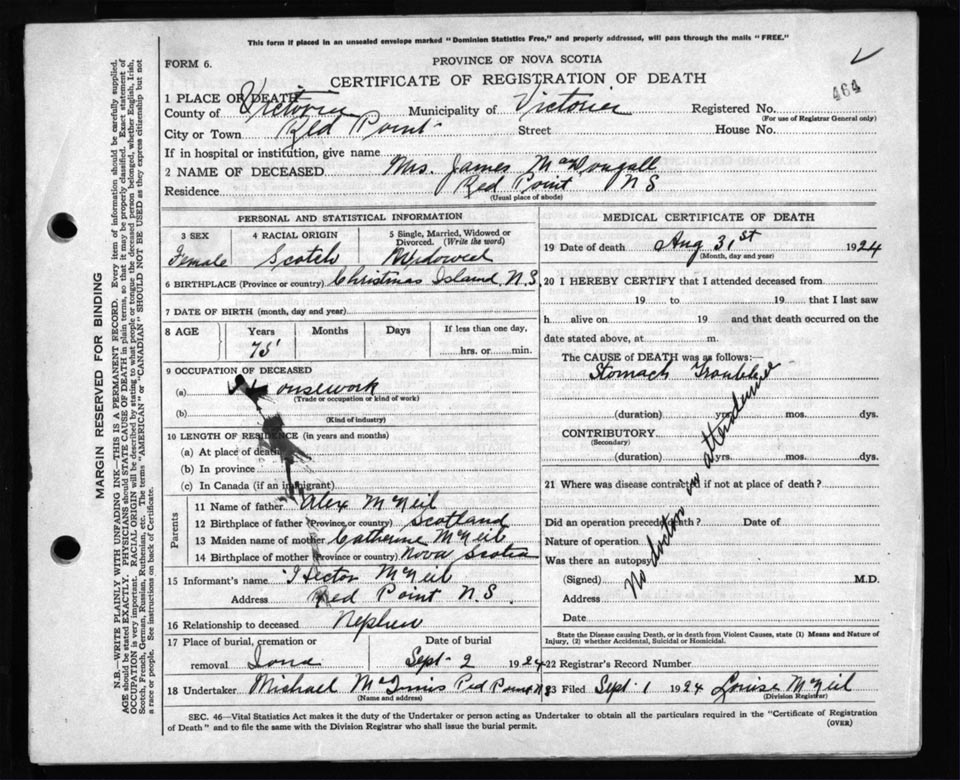 This form if placed in an unsealed envelope marked "Dominion Statistics Free," and properly addressed, will pass through the mails "FREE."
FORM 6.
PROVINCE OF NOVA SCOTIA
CERTIFICATE OF REGISTRATION OF DEATH
464
1 PLACE OF DEATH
County of Victoria Municipality of Victoria Registered No.
(For use of Registrar General only)
City or Town Red Point Street House No.
If in hospital or institution, give name
2 NAME OF DECEASED Mrs. James MacDougall
Residence Red Point N S
(Usual place of abode)
PERSONAL AND STATISTICAL INFORMATION
3 SEX 4 RACIAL ORIGIN 5 Single, Married, Widowed or Divorced. (Write the word)
Female Scotch Widowed
6 BIRTHPLACE (Province or country) Christmas Island N.S.
7 DATE OF BIRTH (month, day and year)
8 AGE Years Months Days If less than one day,
75 hrs. or min.
9 OCCUPATION OF DECEASED
(a) Housework
(Trade or occupation or kind of work)
(b)
(Kind of industry)
10 LENGTH OF RESIDENCE (in years and months)
(a) At place of death
(b) In province
(c) In Canada (if an immigrant)
Parents
11 Name of father Alex McNeil
12 Birthplace of father (Province or country) Scotland
13 Maiden name of mother Catherine McNeil
14 Birthplace of mother (Province or country) Nova Scotia
15 Informant's name Hector McNeil
Address Red Point N.S.
16 Relationship to deceased Nephew
17 Place of burial, cremation or Date of burial
removal Iona Sept 2 1924
18 Undertaker Michael McInnis Red Point N S
(Name and address)
MEDICAL CERTIFICATE OF DEATH
19 Date of death Aug 31st 1924
(Month, day and year)
20 I HEREBY CERTIFY that I attended deceased from
19 to 19 that I last saw
h alive on 19 and that death occurred on the
date stated above, at m.
The CAUSE of DEATH was as follows:—
Stomach Trouble
(duration) yrs. mos. dys.
CONTRIBUTORY
(Secondary)
(duration) yrs. mos. dys.
21 Where was disease contracted if not at place of death?
Did an operation precede death? Date of
Nature of operation
Was there an autopsy
(Signed) M.D.
Address
Date
No doctor in attendance
State the Disease causing Death, or in death from Violent Causes, state (1) Means and Nature of
Injury, (2) whether Accidental, Suicidal or Homicidal.
22 Registrar's Record Number
23 Filed Sept 1 1924 Louise McNeil
(Division Registrar)
SEC. 46—Vital Statistics Act makes it the duty of the Undertaker or person acting as Undertaker to obtain all the particulars required in the "Certificate of Registration
of Death" and to file the same with the Division Registrar who shall issue the burial permit.
(OVER)
MARGIN RESERVED FOR BINDING
N.B.—WRITE PLAINLY WITH UNFADING INK—THIS IS A PERMANENT RECORD. Every item of information should be carefully supplied.
AGE should be stated EXACTLY. PHYSICIANS should STATE CAUSE OF DEATH in plain terms, so that it may be properly classified. Exact statement of
OCCUPATION is very important. RACIAL ORIGIN will be described by stating to what people or tongue the deceased person belonged, whether English, Irish,
Scotch, French, German, Russian, Ruthenian, etc. The terms "AMERICAN" or "CANADIAN" SHOULD NOT BE USED as they express citizenship but not
a race or people. See instructions on back of Certificate.